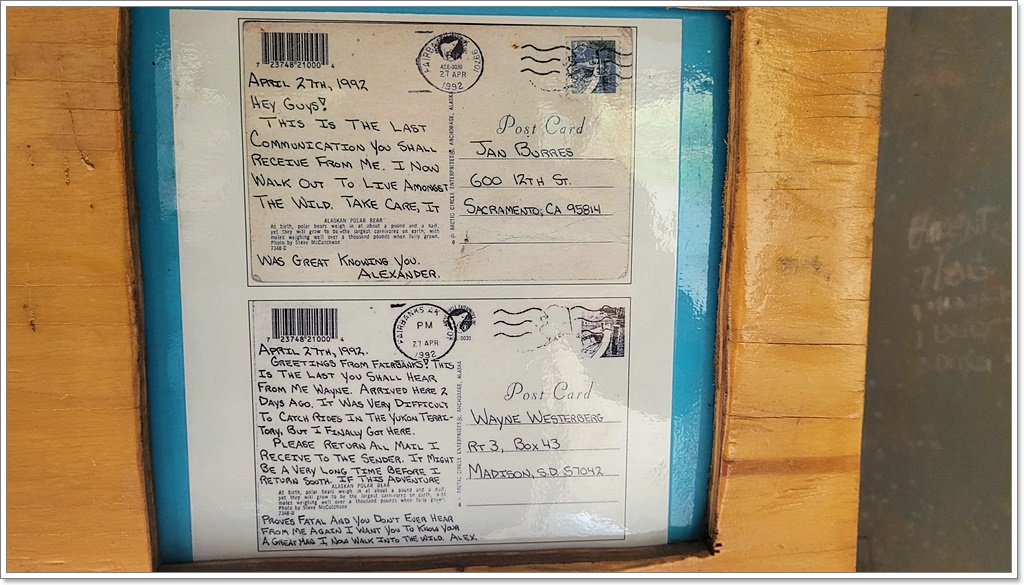 7 23748 21000 4
FAIRBANKS
27 APR
1992
APRIL 27TH, 1992
HEY GUYS!
THIS IS THE LAST
COMMUNICATION YOU SHALL
RECEIVE FROM ME. I NOW
WALK OUT TO LIVE AMONGST
THE WILD. TAKE CARE, IT
ALASKAN POLAR BEAR
At birth, polar bears weigh in at about a pound and a half,
yet they will grow to be the largest carnivores on earth, with
males weighing well over a thousand pounds when fully grown.
Photo by Steve McCutcheon
7348-D
WAS GREAT KNOWING YOU.
ALEXANDER.
ARCTIC CIRCLE ENTERPRISES, ANCHORAGE, ALASKA
Post Card
JAN BURRES
600 12TH ST.
SACRAMENTO, CA 95814
7 23748 21000 4
FAIRBANKS AK
PM
27 APR
1992
APRIL 27TH, 1992.
GREETINGS FROM FAIRBANKS! THIS
IS THE LAST YOU SHALL HEAR
FROM ME WAYNE. ARRIVED HERE 2
DAYS AGO. IT WAS VERY DIFFICULT
TO CATCH RIDES IN THE YUKON TERRI-
TORY, BUT I FINALLY GOT HERE.
PLEASE RETURN ALL MAIL I
RECEIVE TO THE SENDER. IT MIGHT
BE A VERY LONG TIME BEFORE I
RETURN SOUTH. IF THIS ADVENTURE
ALASKAN POLAR BEAR
At birth, polar bears weigh in at about a pound and a half,
yet they will grow to be the largest carnivores on earth, with
males weighing well over a thousand pounds when fully grown.
Photo by Steve McCutcheon
7348-D
PROVES FATAL AND YOU DON'T EVER HEAR
FROM ME AGAIN I WANT YOU TO KNOW YOUR
A GREAT MAN. I NOW WALK INTO THE WILD. ALEX.
ARCTIC CIRCLE ENTERPRISES, ANCHORAGE, ALASKA
Post Card
WAYNE WESTERBERG
RT 3, BOX 43
MADISON, S.D. 57042